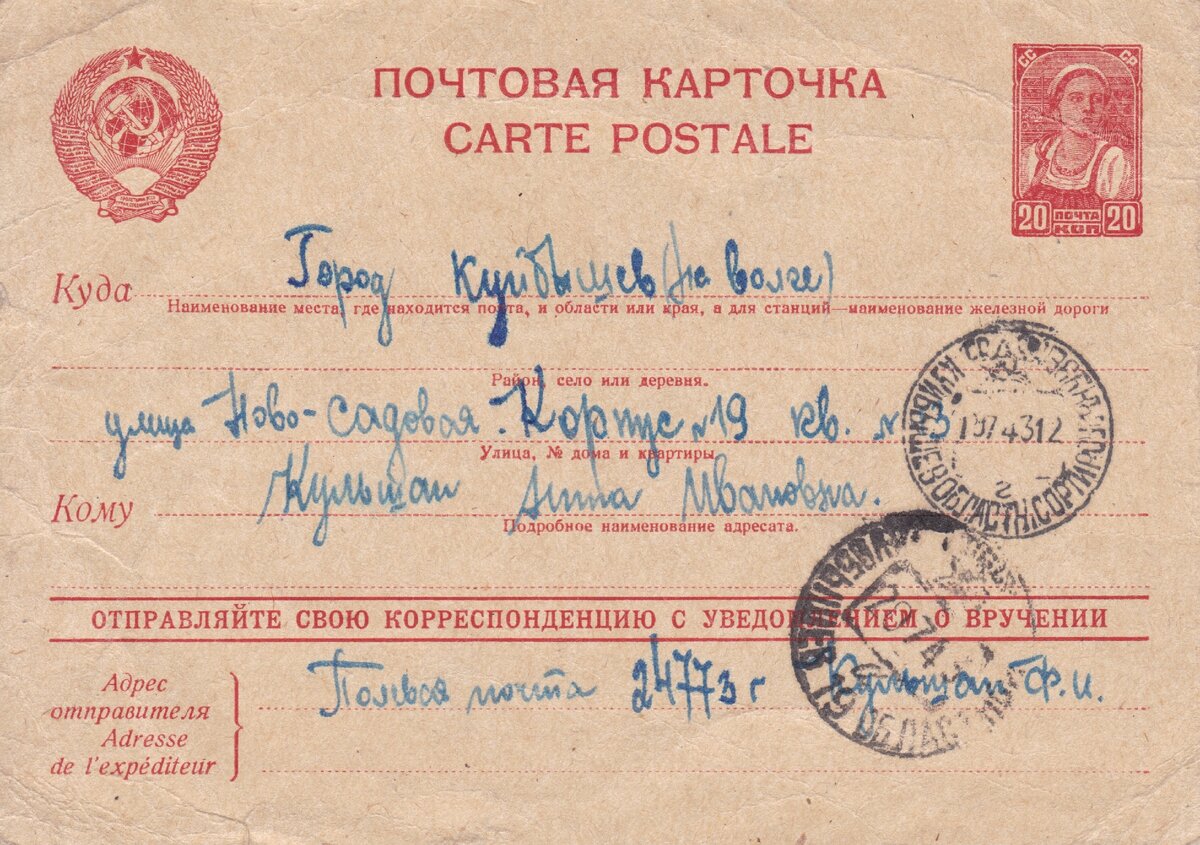 ПОЧТОВАЯ КАРТОЧКА
CARTE POSTALE
СС СР
20 ПОЧТА КОП 20
Куда Город Куйбышев (на волге)
Наименование места, где находится почта, и области или края, а для станций—наименование железной дороги
Район, село или деревня.
улица Ново-садовая. Корпус №19 кв. № 3
Улица, № дома и квартиры
Кому Кульшан Анна Ивановна.
Подробное наименование адресата.
КУЙБЫШЕВ ОБЛАСТН.
ОТПРАВЛЯЙТЕ СВОЮ КОРРЕСПОНДЕНЦИЮ С УВЕДОМЛЕНИЕМ О ВРУЧЕНИИ
Адрес отправителя
Adresse de l'expéditeur
Полевая почта 24773 г Кульшан Ф. И.